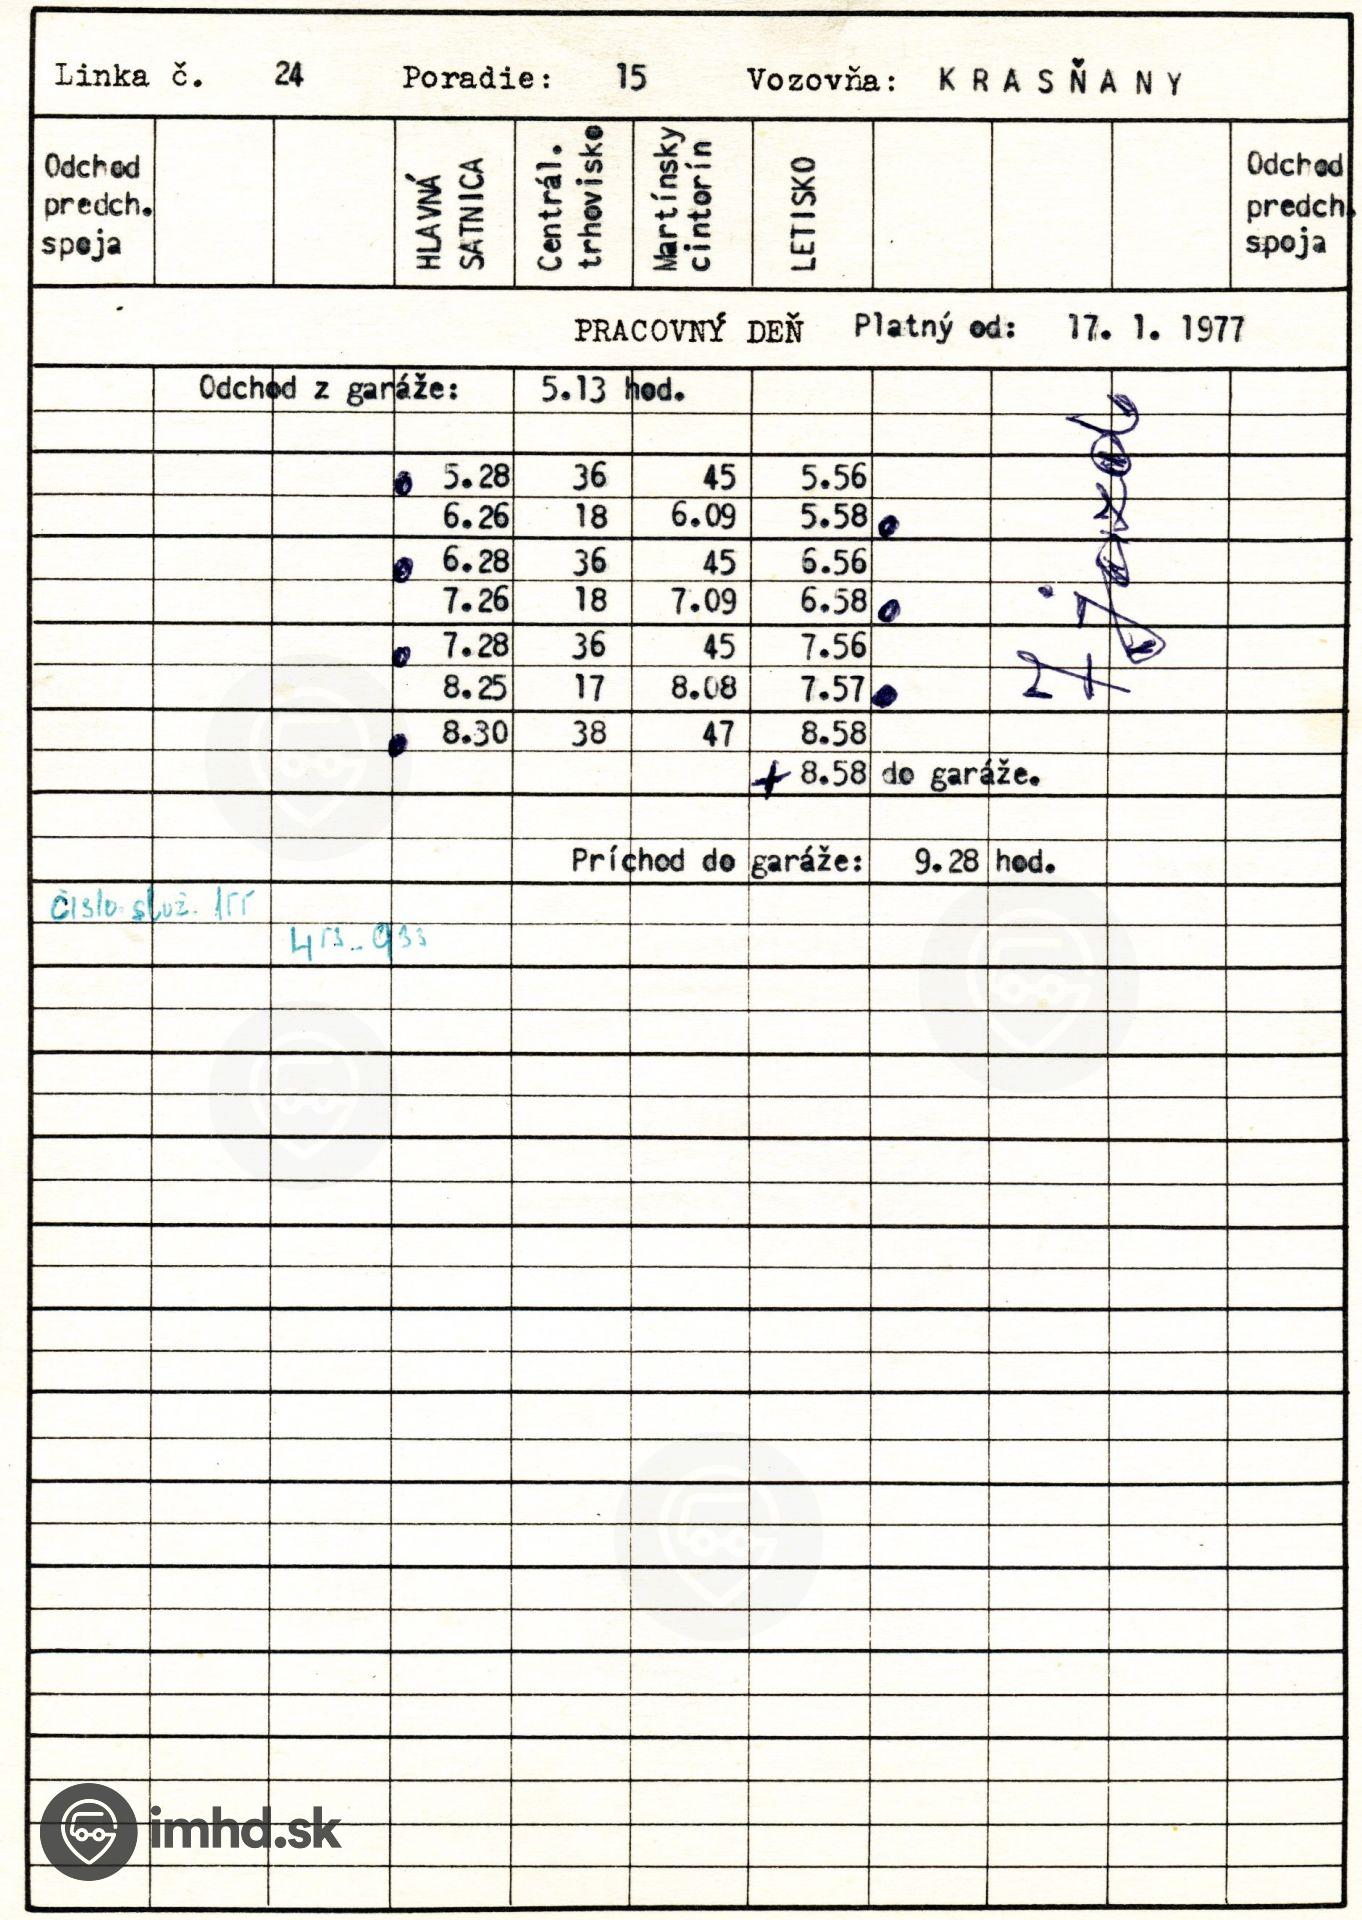 Linka č. 24 Poradie: 15 Vozovňa: KRASŇANY
Odchod
predch.
spoja
HLAVNÁ
SATNICA
Centrál.
trhovisko
Martínsky
cintorín
LETISKO
Odchod
predch.
spoja
PRACOVNÝ DEŇ Platný od: 17. 1. 1977
Odchod z garáže: 5.13 hod.
5.28 36 45 5.56
6.26 18 6.09 5.58
6.28 36 45 6.56
7.26 18 7.09 6.58
7.28 36 45 7.56
8.25 17 8.08 7.57
8.30 38 47 8.58
+ 8.58 do garáže.
7 jázd
Príchod do garáže: 9.28 hod.
Číslo služ. 155
4 53 - 9 33
imhd.sk